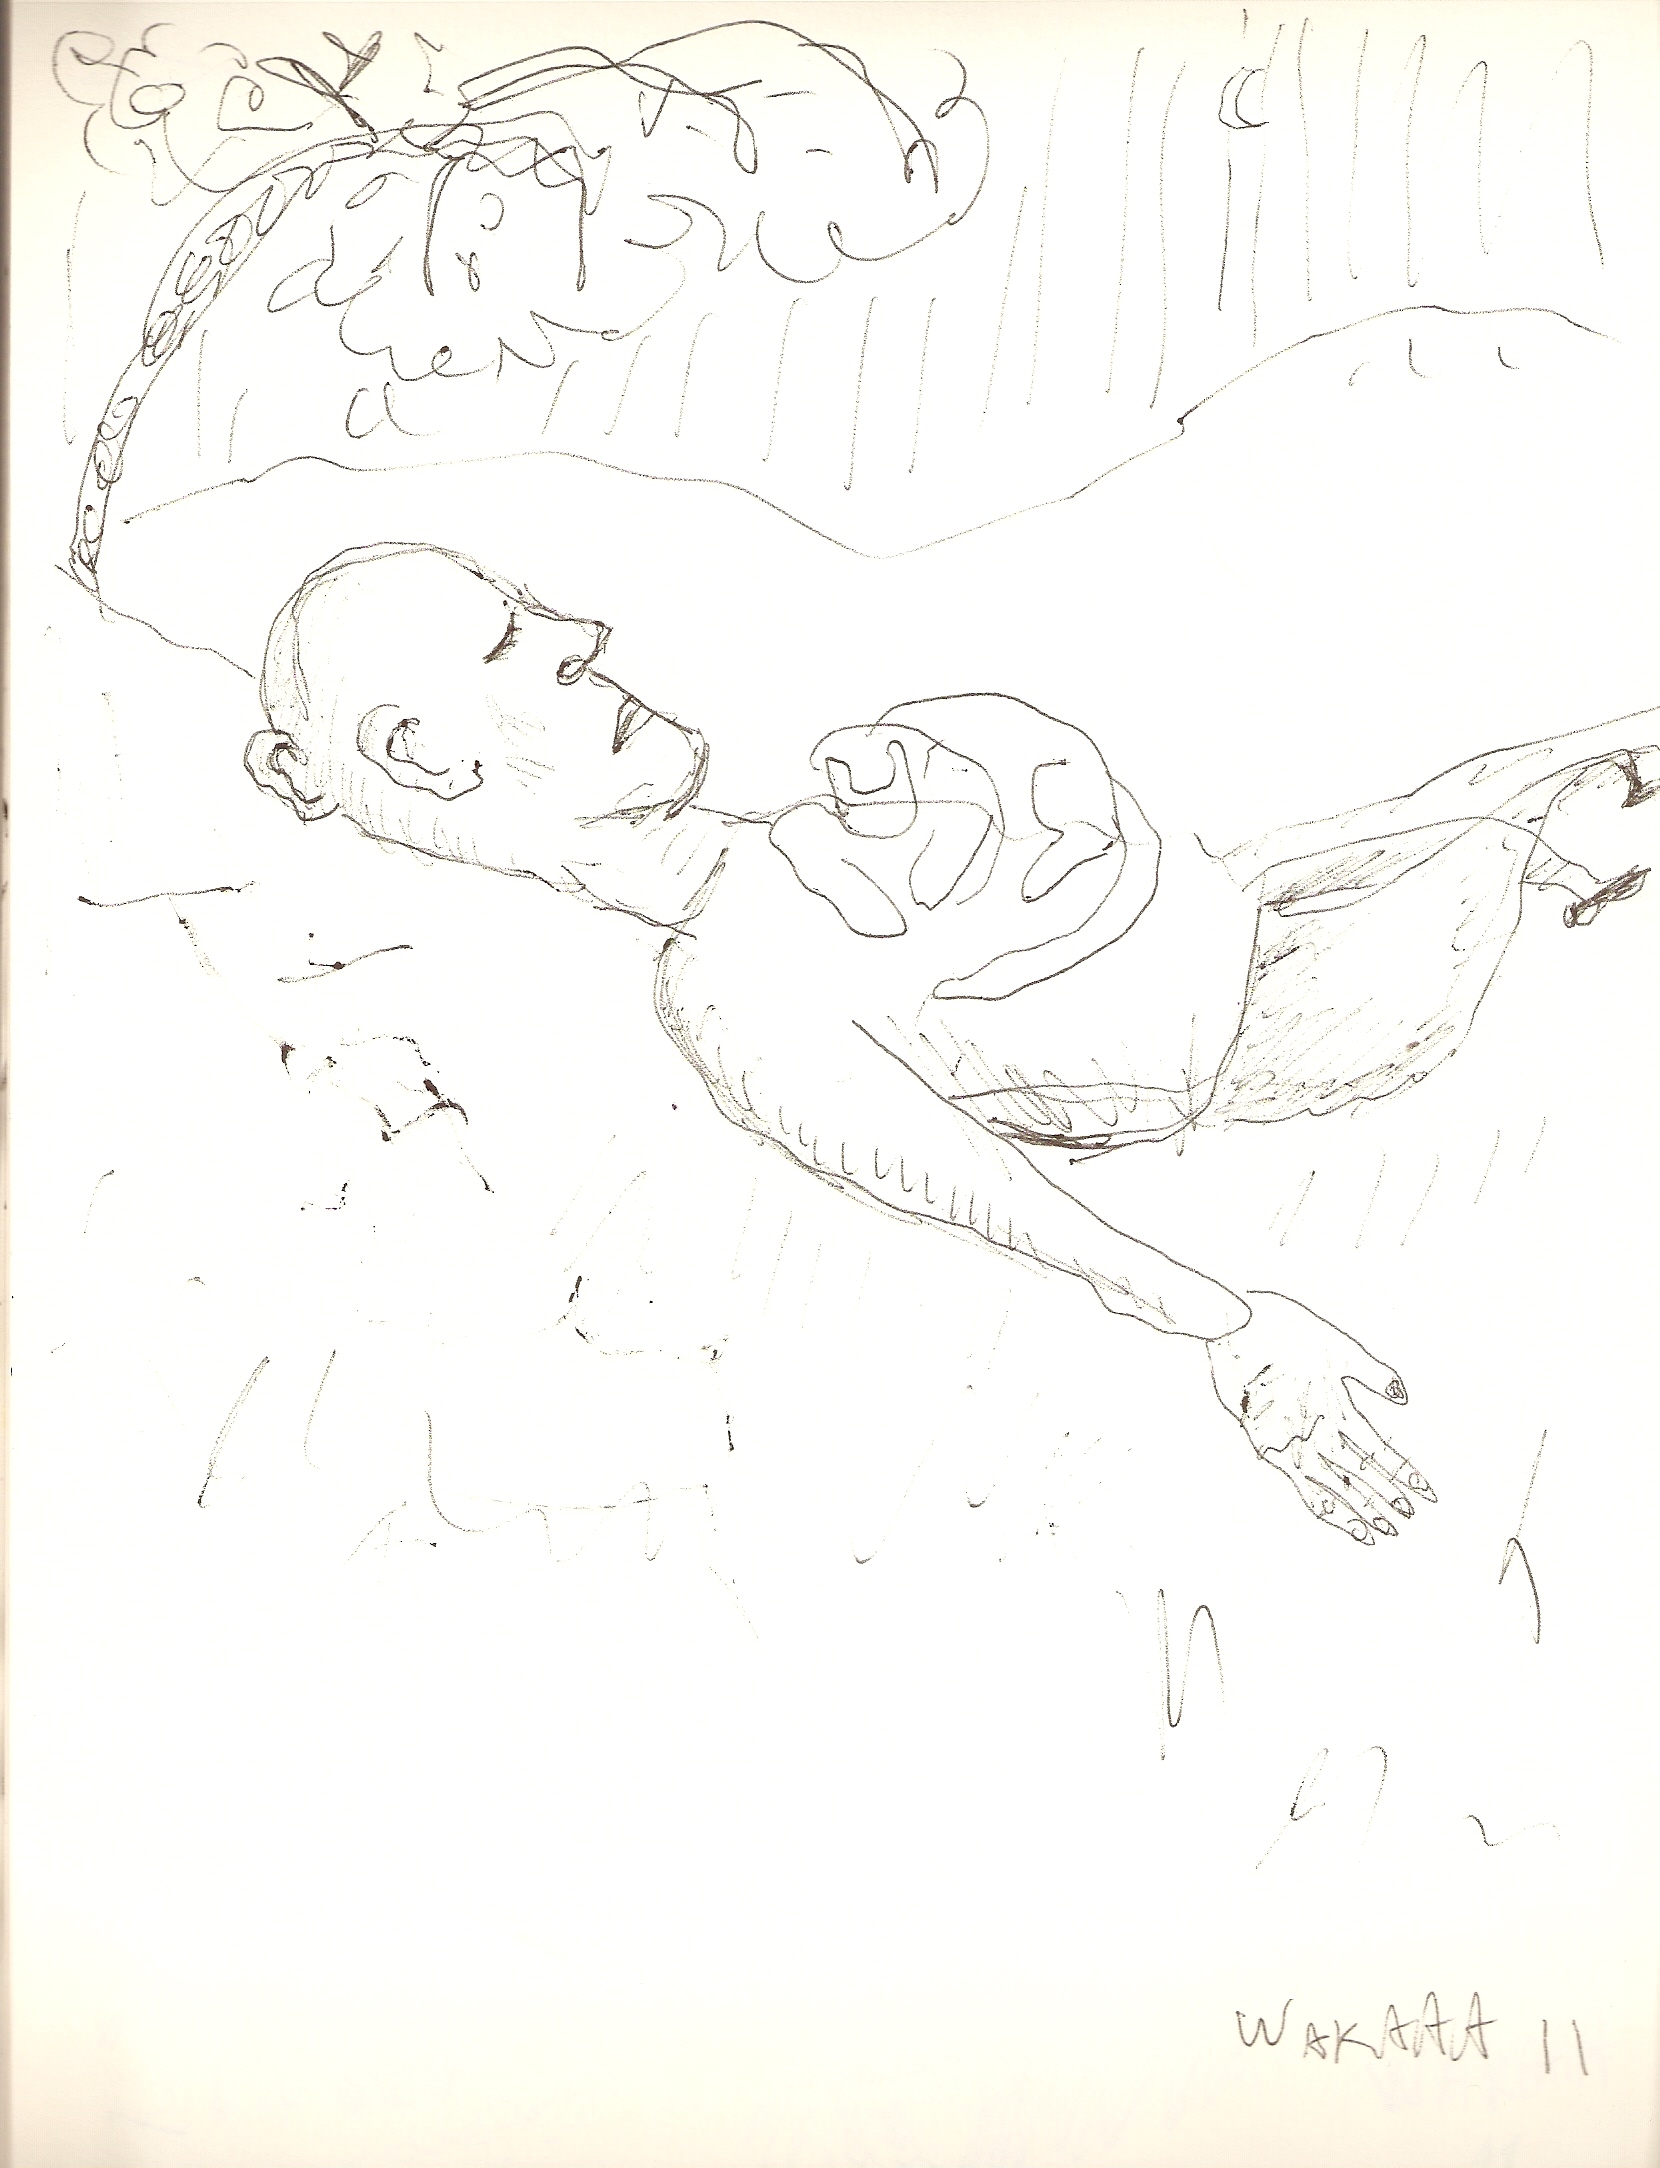 WAKAAA 11